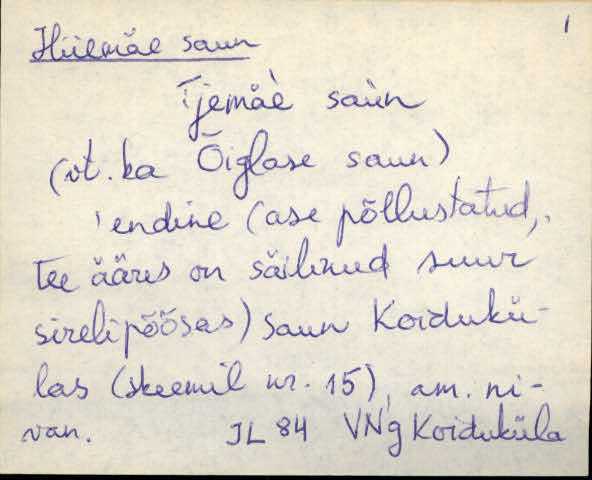 1
Hiiemäe saun
Ijemäè saùn
(vt. ka Õiglase saun)
endine (ase põllustatud,
tee ääres on säilinud suur
sirelipõõsas) saun Koidukü-
las (skeemil nr. 15), am. ni-
van. JL 84 VNg Koiduküla